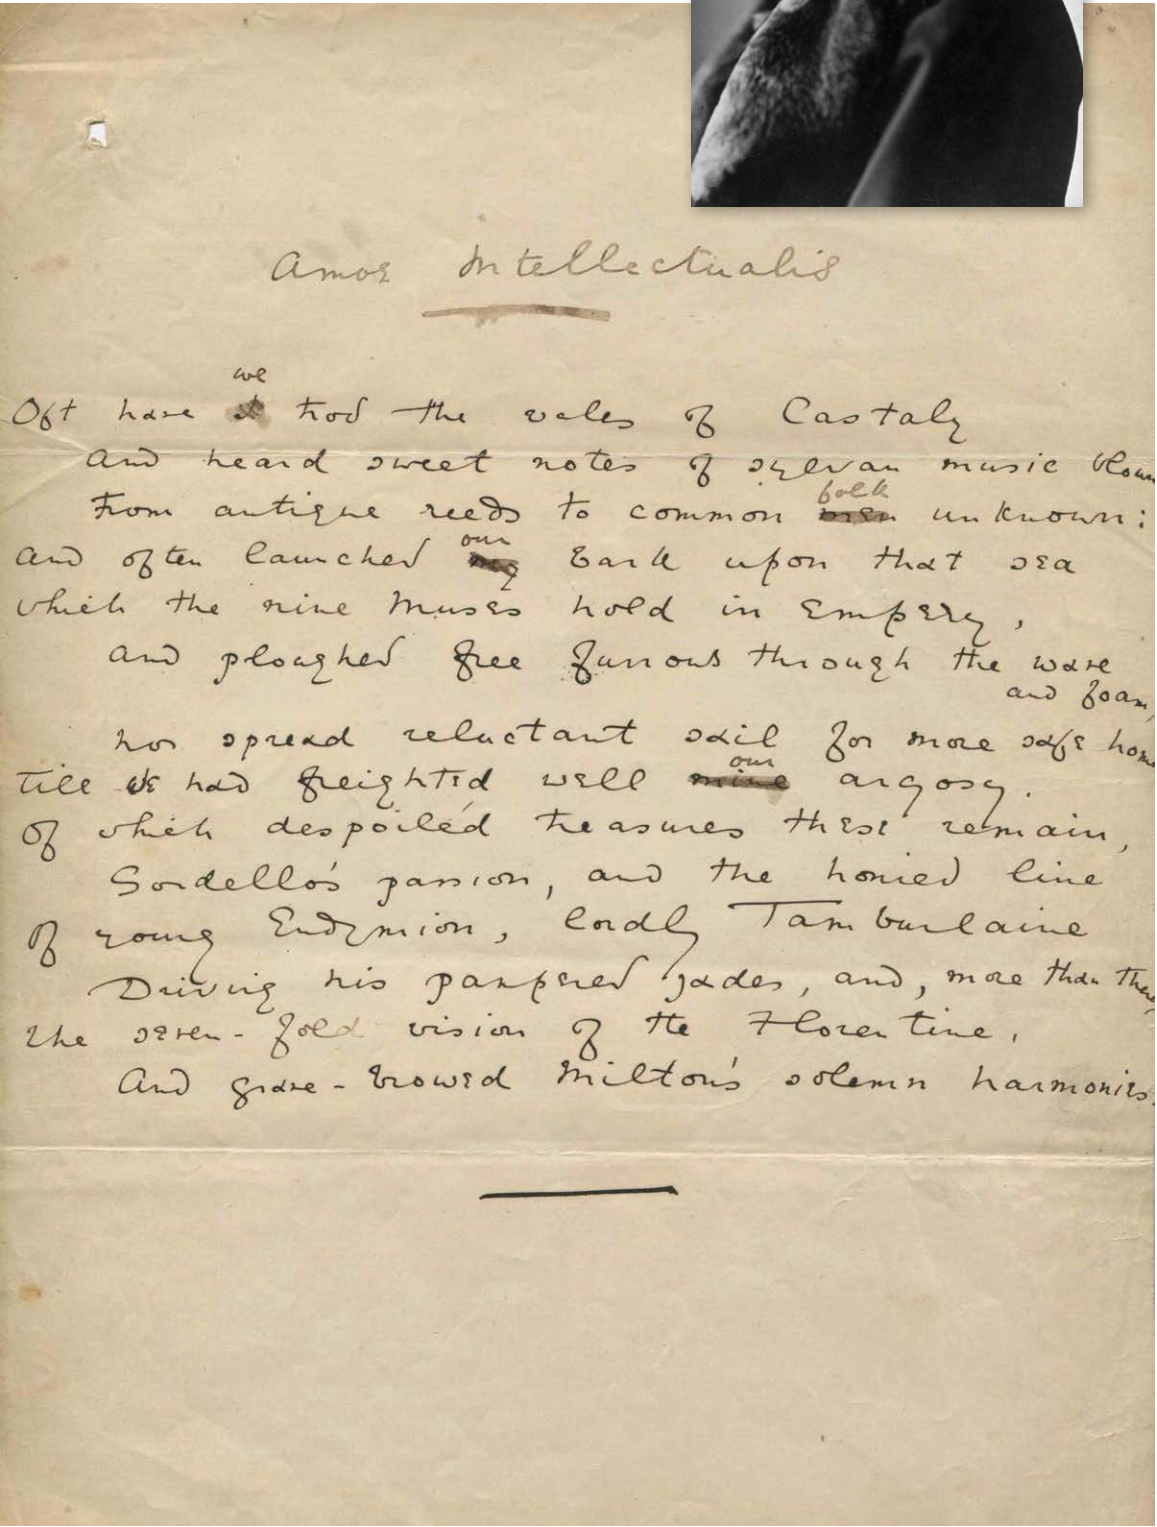 Amor Intellectualis
we
Oft have I trod the vales of Castaly
And heard sweet notes of sylvan music blown
folk
From antique reeds to common men unknown:
our
And often launched my bark upon that sea
which the nine Muses hold in Empery,
And ploughed free furrows through the wave
and foam,
Nor spread reluctant sail for more safe home
our
Till we had freighted well mine argosy.
Of which despoilèd treasures these remain,
Sordello's passion, and the honied line
Of young Endymion, lordly Tamburlaine
Driving his pampered jades, and, more than these,
The seven-fold vision of the Florentine,
And grave-browed Milton's solemn harmonies.